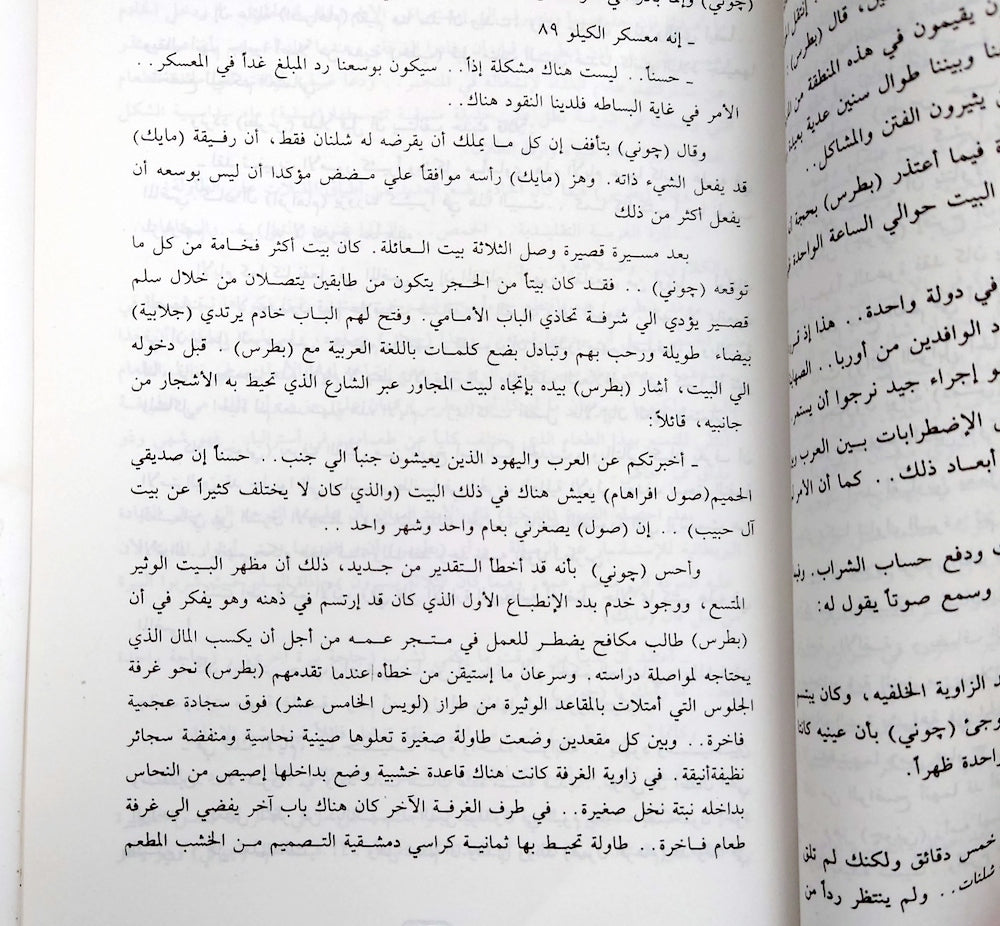 (چوني) وإنما
ـ إنه معسكر الكيلو ٨٩
ـ حسناً.. ليست هناك مشكلة إذاً.. سيكون بوسعنا رد المبلغ غداً في المعسكر..
الأمر في غاية البساطه فلدينا النقود هناك..
وقال (چوني) بتأفف إن كل ما يملك أن يقرضه له شلنان فقط، أن رفيقة (مايك)
قد يفعل الشيء ذاته. وهز (مايك) رأسه موافقاً علي مضض مؤكدا أن ليس بوسعه أن
يفعل أكثر من ذلك
بعد مسيرة قصيرة وصل الثلاثة بيت العائلة. كان بيت أكثر فخامة من كل ما
توقعه (چوني).. فقد كان بيتاً من الحجر يتكون من طابقين يتصلان من خلال سلم
قصير يؤدي الي شرفة تحاذي الباب الأمامي. وفتح لهم الباب خادم يرتدي (جلابية)
بيضاء طويلة ورحب بهم وتبادل بضع كلمات باللغة العربية مع (بطرس). قبل دخوله
الي البيت، أشار (بطرس) بيده بإتجاه لبيت المجاور عبر الشارع الذي تحيط به الأشجار من
جانبيه، قائلاً:
ـ أخبرتكم عن العرب واليهود الذين يعيشون جنباً الي جنب.. حسناً إن صديقي
الحميم(صول افراهام) يعيش هناك في ذلك البيت (والذي كان لا يختلف كثيراً عن بيت
آل حبيب).. إن (صول) يصغرني بعام واحد وشهر واحد..
وأحس (چوني) بأنه قد أخطأ التقدير من جديد، ذلك أن مظهر البيت الوثير
المتسع، ووجود خدم بدد الإنطباع الأول الذي كان قد إرتسم في ذهنه وهو يفكر في أن
(بطرس) طالب مكافح يضطر للعمل في متجر عمه من أجل أن يكسب المال الذي
يحتاجه لمواصلة دراسته. وسرعان ما إستيقن من خطأه عندما تقدمهم (بطرس) نحو غرفة
الجلوس التي أمتلات بالمقاعد الوثيرة من طراز (لويس الخامس عشر) فوق سجادة عجمية
فاخرة.. وبين كل مقعدين وضعت طاولة صغيرة تعلوها صينية نحاسية ومنفضة سجائر
نظيفةأنيقة. في زاوية الغرفة كانت هناك قاعدة خشبية وضع بداخلها إصيص من النحاس
بداخله نبتة نخل صغيرة.. في طرف الغرفة الآخر كان هناك باب آخر يفضي الي غرفة
طعام فاخرة.. طاولة تحيط بها ثمانية كراسي دمشقية التصميم من الخشب المطعم
قال (بطرس):
ن يقيمون في هذه المنطقة من
نا وبيننا طوال سنين عدية
ن يثيرون الفتن والمشاكل..
ة فيما أعتذر (بطرس) بحجة
البيت حوالي الساعة الواحدة
في دولة واحدة.. هذا إذ
د الوافدين من أوربا..
و إجراء جيد نرجوا أن
الإضطرابات بين العرب
أبعاد ذلك.. كما أن الأمر
ودفع حساب الشراب.
وسمع صوتاً يقول له:
د الزاوية الخلفيه، وكان
وجئ (چوني) بأن عينيه كانتا
واحدة ظهراً.
خمس دقائق ولكنك لم
شلنات.. ولم ينتظر رداً من